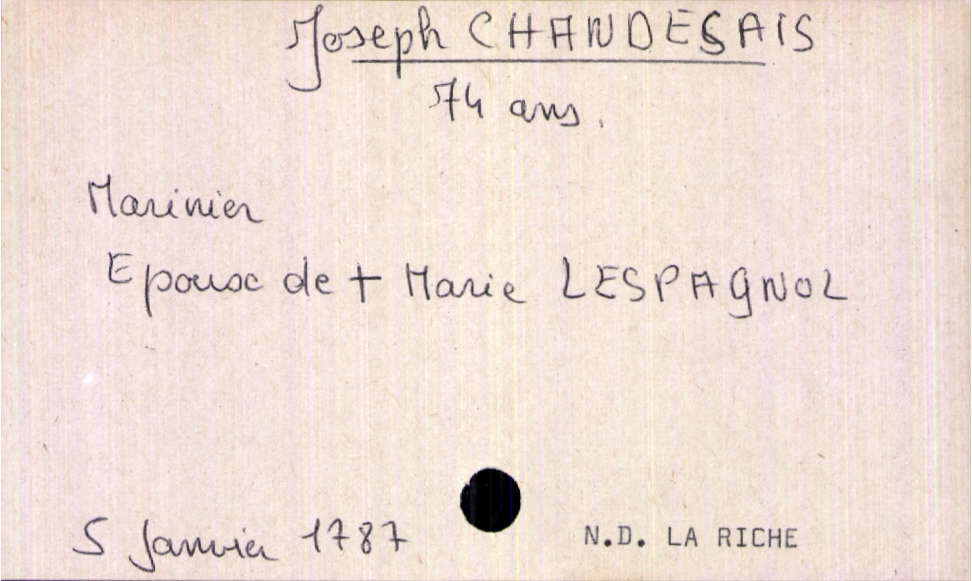 Joseph CHANDESAIS
74 ans.
Marinier
Epouse de + Marie LESPAGNOL
5 Janvier 1787
N.D. LA RICHE